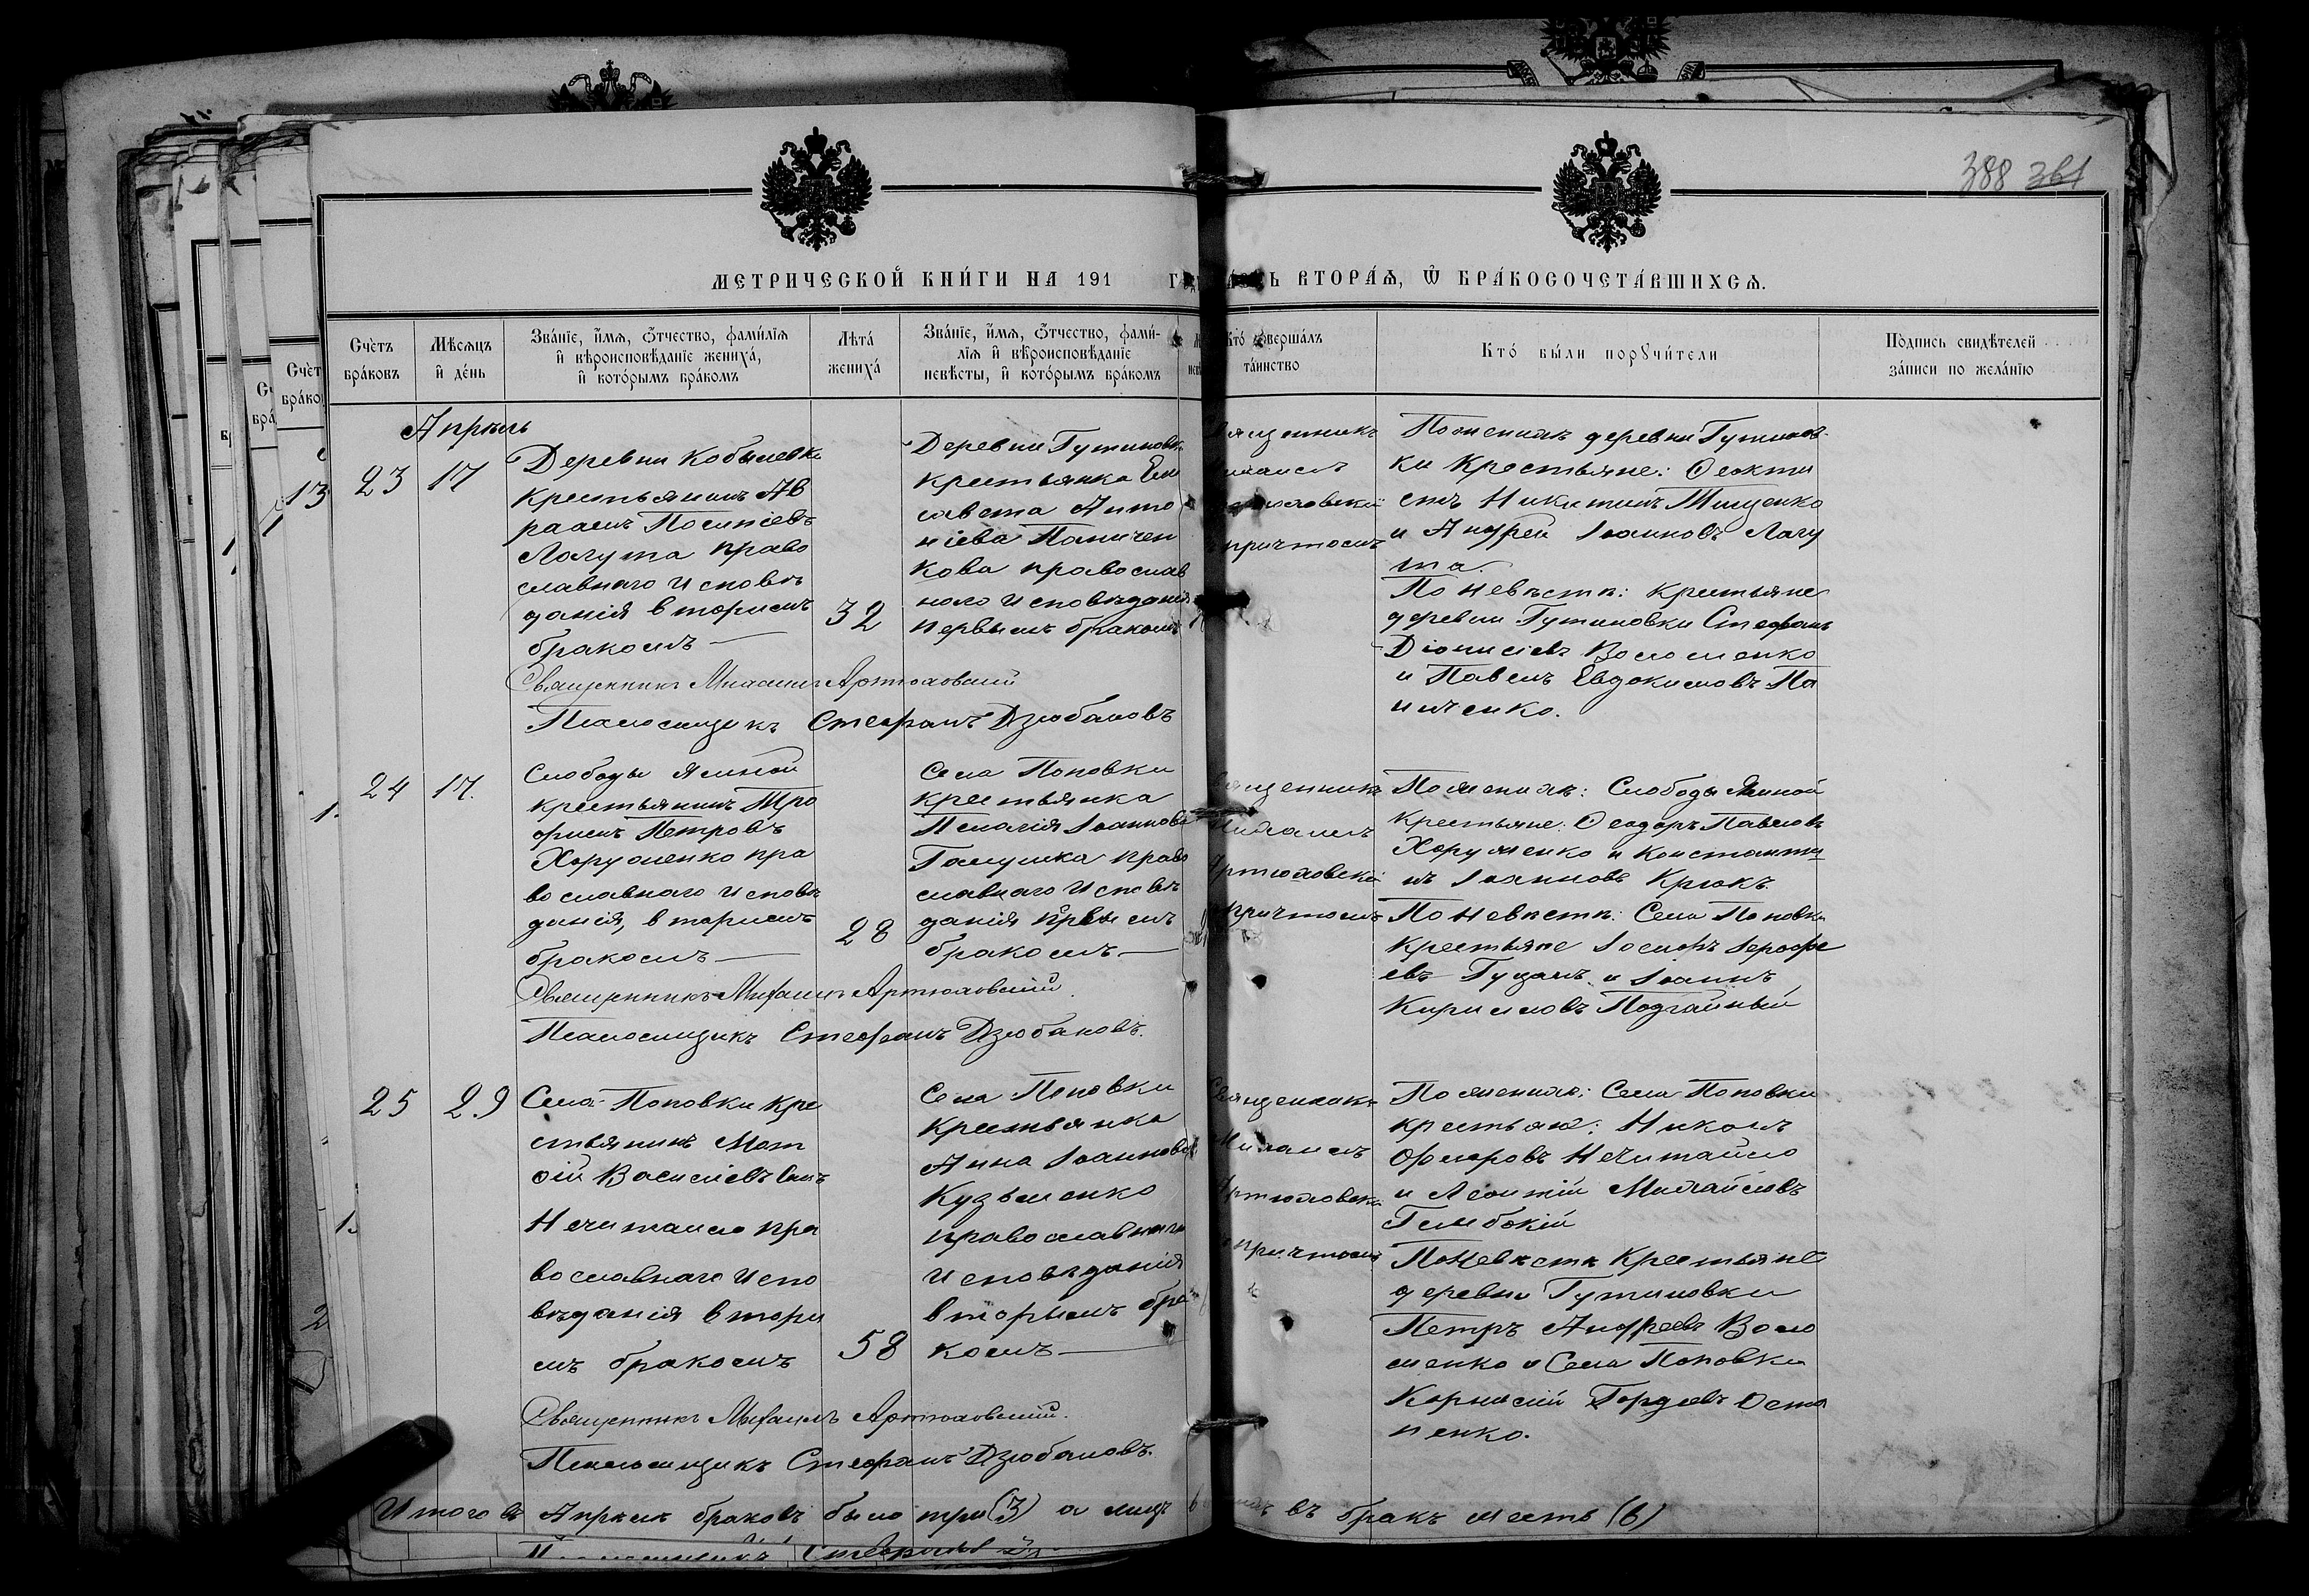 388 361
МЕТРИЧЕСКОЙ КНИ́ГИ НА 191
ВТОРА́Ѧ, Ѿ БРА́КОСОЧЕТА́ВШИХСѦ.
Сче́тъ бра́ковъ
Мѣ́сѧцъ и҆ де́нь
Зва́нїе, и҆́мѧ, ѻ҆́тчество, фами́лїѧ
и҆ вѣроисповѣ́данїе жениха́,
и҆ кото́рымъ бра́комъ
Лѣта́ жениха́
Зва́нїе, и҆́мѧ, ѻ҆́тчество, фами́-
лїѧ и҆ вѣроисповѣ́данїе
невѣ́сты, и҆ кото́рымъ бра́комъ
Кто́ соверша́лъ
та́инство
Кто́ бы́ли порꙋчи́тели
По́дпись свидѣ́телей
за́писи по жела́нїю
Апрѣль
23 17
Деревни Кобылевки
крестьянинъ Ав
раамъ
Логута право
славнаго исповѣ
данія вторымъ
бракомъ
32
Деревни Гутиновк
крестьянка Ели
савета Анто
ніева Паничен
кова православ
наго исповѣданія
первымъ бракомъ
причтомъ
По женихѣ деревни Гутинов-
ки Крестьяне: Ѳеокти
стъ Никитинъ Мищенко
и Андрей Іоанновъ Логу
та.
По невѣстѣ: крестьяне
деревни Гутиновки Стефанъ
Діонисіевъ Волошенко
и Павелъ Евдокимовъ Па
ниченко.
Священникъ Михаилъ Артюховскій
Псаломщикъ Стефанъ Дзюбановъ
24 17.
Слободы Ямной
крестьянинъ Тро
фимъ Петровъ
Хоруженко пра
вославнаго исповѣ
данія, вторымъ
бракомъ
28
Села Поповки
крестьянка
Пелагія Іоаннова
Галушка право
славнаго исповѣ
данія первымъ
бракомъ
Михаилъ
Артюховскій
причтомъ
По женихѣ: Слободы Ямной
крестьяне: Ѳеодоръ Павловъ
Хоруженко и Константи
нъ Іоанновъ Крюкъ.
По невѣстѣ: Села Поповки
крестьяне Іосифъ Іерофе
евъ и Іоаннъ
Кирилловъ Подгайный
Священникъ Михаилъ Артюховскій
Псаломщикъ Стефанъ Дзюбановъ.
25 29
Села Поповки кре
стьянинъ Мат
ѳій Василіевъ
Нечитайло пра
вославнаго испо
вѣданія вторы
мъ бракомъ
58
Села Поповки
крестьянка
Анна Іоаннова
Кузьменко
православнаго
исповѣданія
вторымъ бра
комъ
Священникъ
Михаилъ
Артюховскій
причтомъ
По женихѣ: Села Поповки
крестьяне: Никонъ
Флоровъ Нечитайло
и Леонтій Михайловъ
По невѣстѣ крестьяне
деревни Гутиновки
Петръ Андреевъ Воло
шенко и Села Поповки
Корнилій Гордѣевъ Оста
пенко.
Священникъ Михаилъ Артюховскій.
Псаломщикъ Стефанъ Дзюбановъ.
Итого въ Апрѣлѣ браковъ было три (3) а лицъ въ бракъ шесть (6)